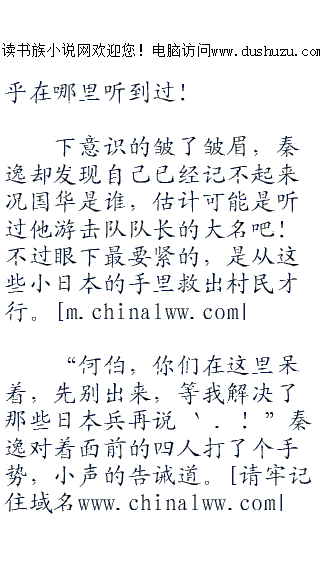 读书族小说网欢迎您！电脑访问www.dushuzu.com
乎在哪里听到过！
下意识的皱了皱眉，秦
逸却发现自己已经记不起来
况国华是谁，估计可能是听
过他游击队队长的大名吧！
不过眼下最要紧的，是从这
些小日本的手里救出村民才
行。[m.china1ww.com|
“何伯，你们在这里呆
着，先别出来，等我解决了
那些日本兵再说｀．！”秦
逸对着面前的四人打了个手
势，小声的告诫道。[请牢记
住域名www.china1ww.com|